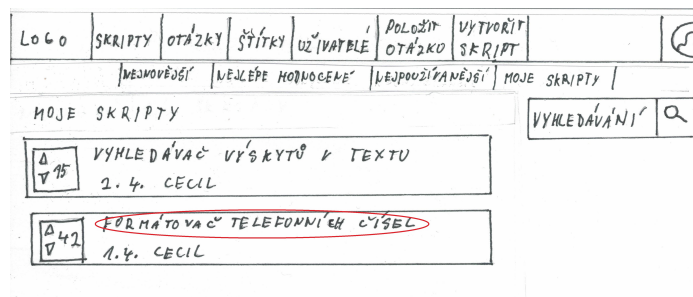 LOGO
SKRIPTY
OTÁZKY
ŠTÍTKY
UŽIVATELÉ
POLOŽIT
OTÁZKU
VYTVOŘIT
SKRIPT
NEJNOVĚJŠÍ
NEJLÉPE HODNOCENÉ
NEJPOUŽÍVANĚJŠÍ
MOJE SKRIPTY
MOJE SKRIPTY
VYHLEDÁVÁNÍ
15
VYHLEDÁVAČ VÝSKYTŮ V TEXTU
2. 4. CECIL
42
FORMÁTOVAČ TELEFONNÍCH ČÍSEL
1. 4. CECIL